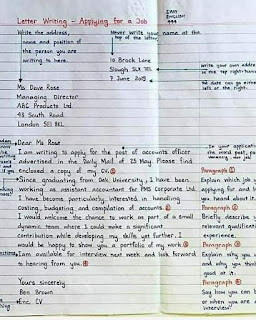 Letter Writing - Applying for a Job
EASY
ENGLISH
Write the address,
name and position
of the person you
are writing to here.
Never write your name at the
top of the letter.
10 Brock Lane
Slough
7 June 2019
Write your own addre
in the top right-hand
The date can go either
left or on the
Ms Dave Rose
Managing Director
ABC Products Ltd.
48 South Road
London SE1 8EL
Dear Ms Rose
I am writing to the post of accounts officer
advertised in the Daily Mail of 25 May. Please find
enclosed a copy of my CV.
Since graduating from Oak University, I have been
working as assistant accountant for PMS Corporate Ltd.
I have become particularly interested in handling
costing, budgeting and compilation of accounts.
I would welcome the chance to work as part of a small
dynamic team where I could make a significant
contribution while developing my skills yet further. I
would be happy to show you a portfolio of my work.
I am available for interview next week and look forward
to hearing from you.
Yours sincerely
Ben Brown
Enc. CV
In your application
Paragraph
Explain which job
applying for and
you heard about it.
Paragraph
Briefly describe y
relevant qualificati
experience.
Paragraph
Explain why you
and why you think
good at it.
Paragraph
Say how you can b
or when you are
interview?